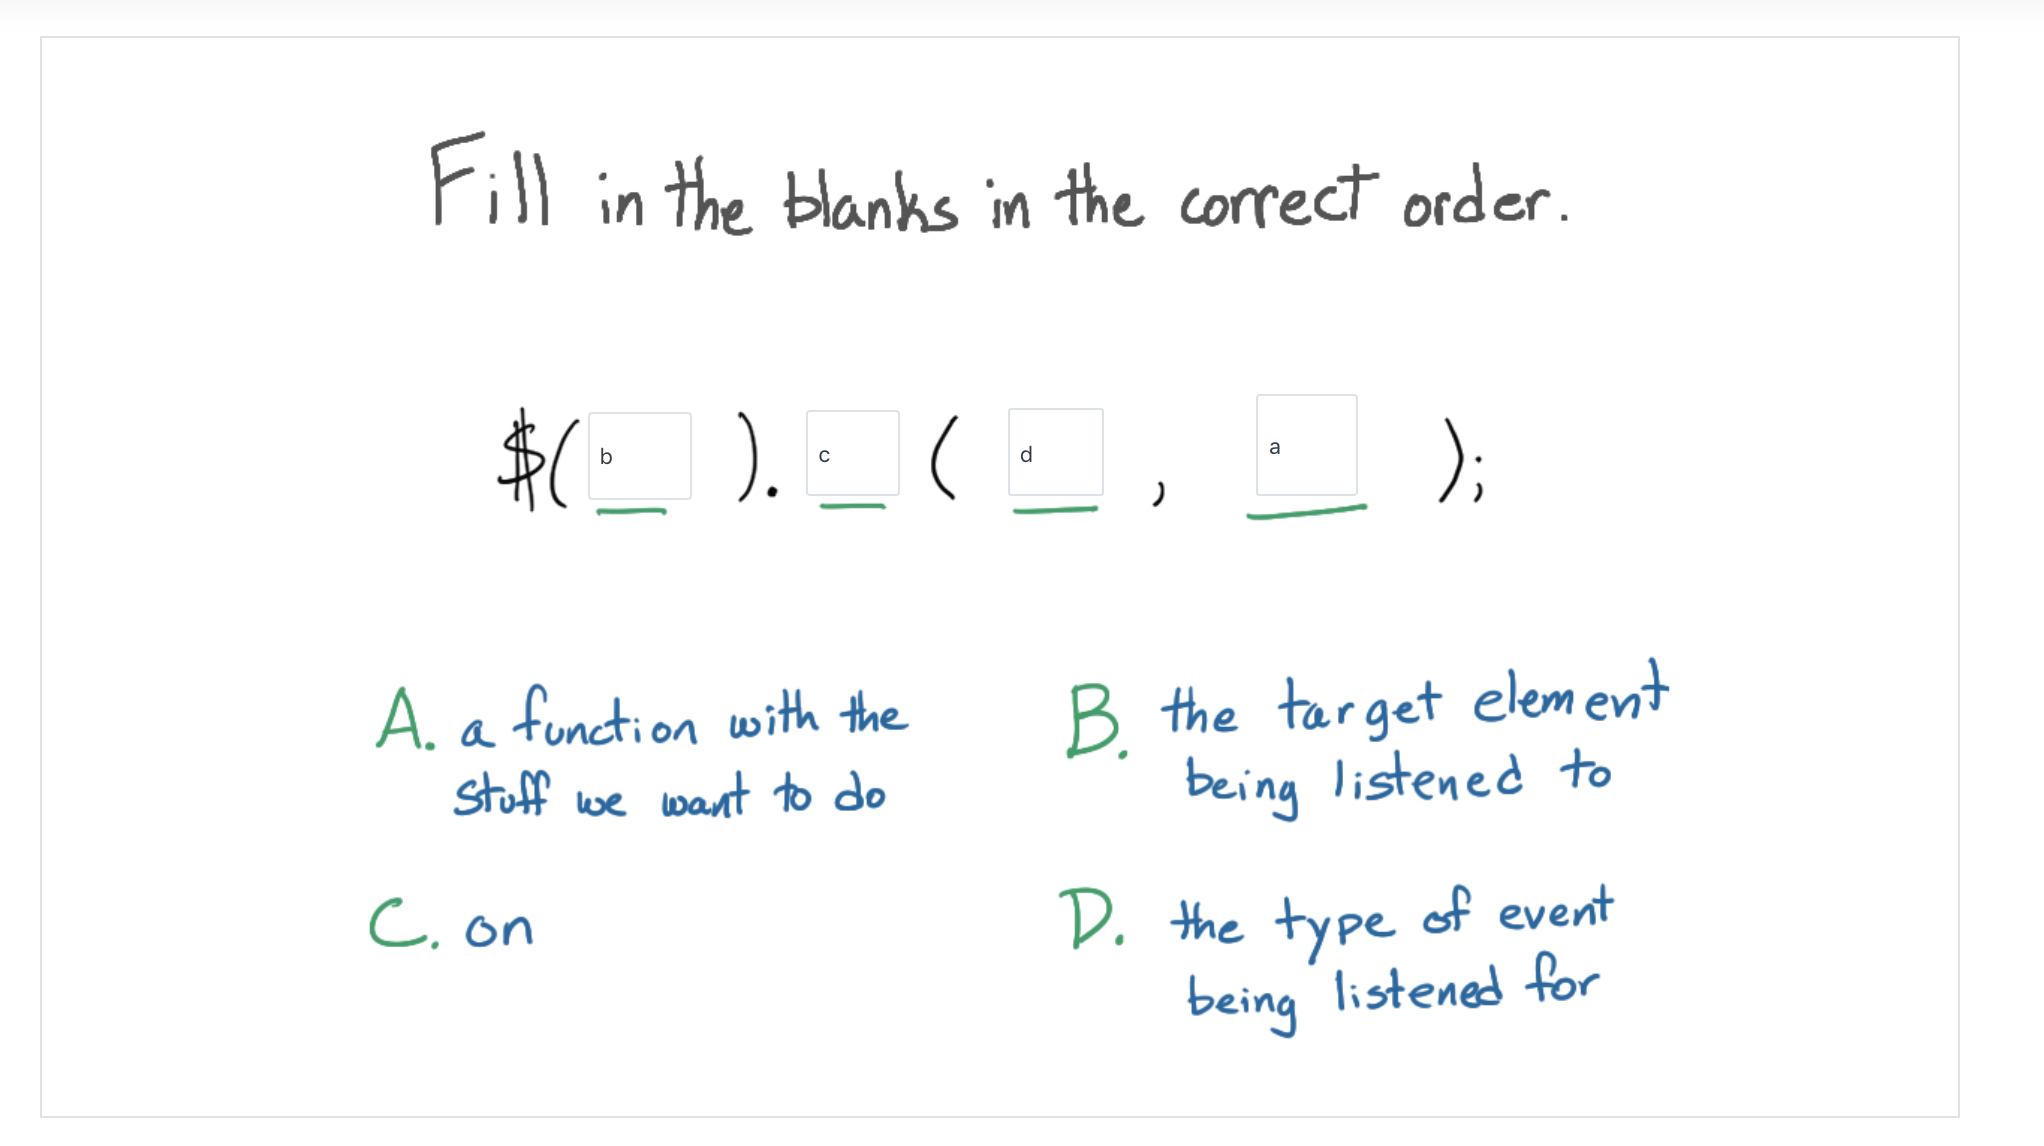 Fill in the blanks in the correct order.
$( b ). c ( d , a );
A. a function with the
stuff we want to do
B. the target element
being listened to
C. on
D. the type of event
being listened for